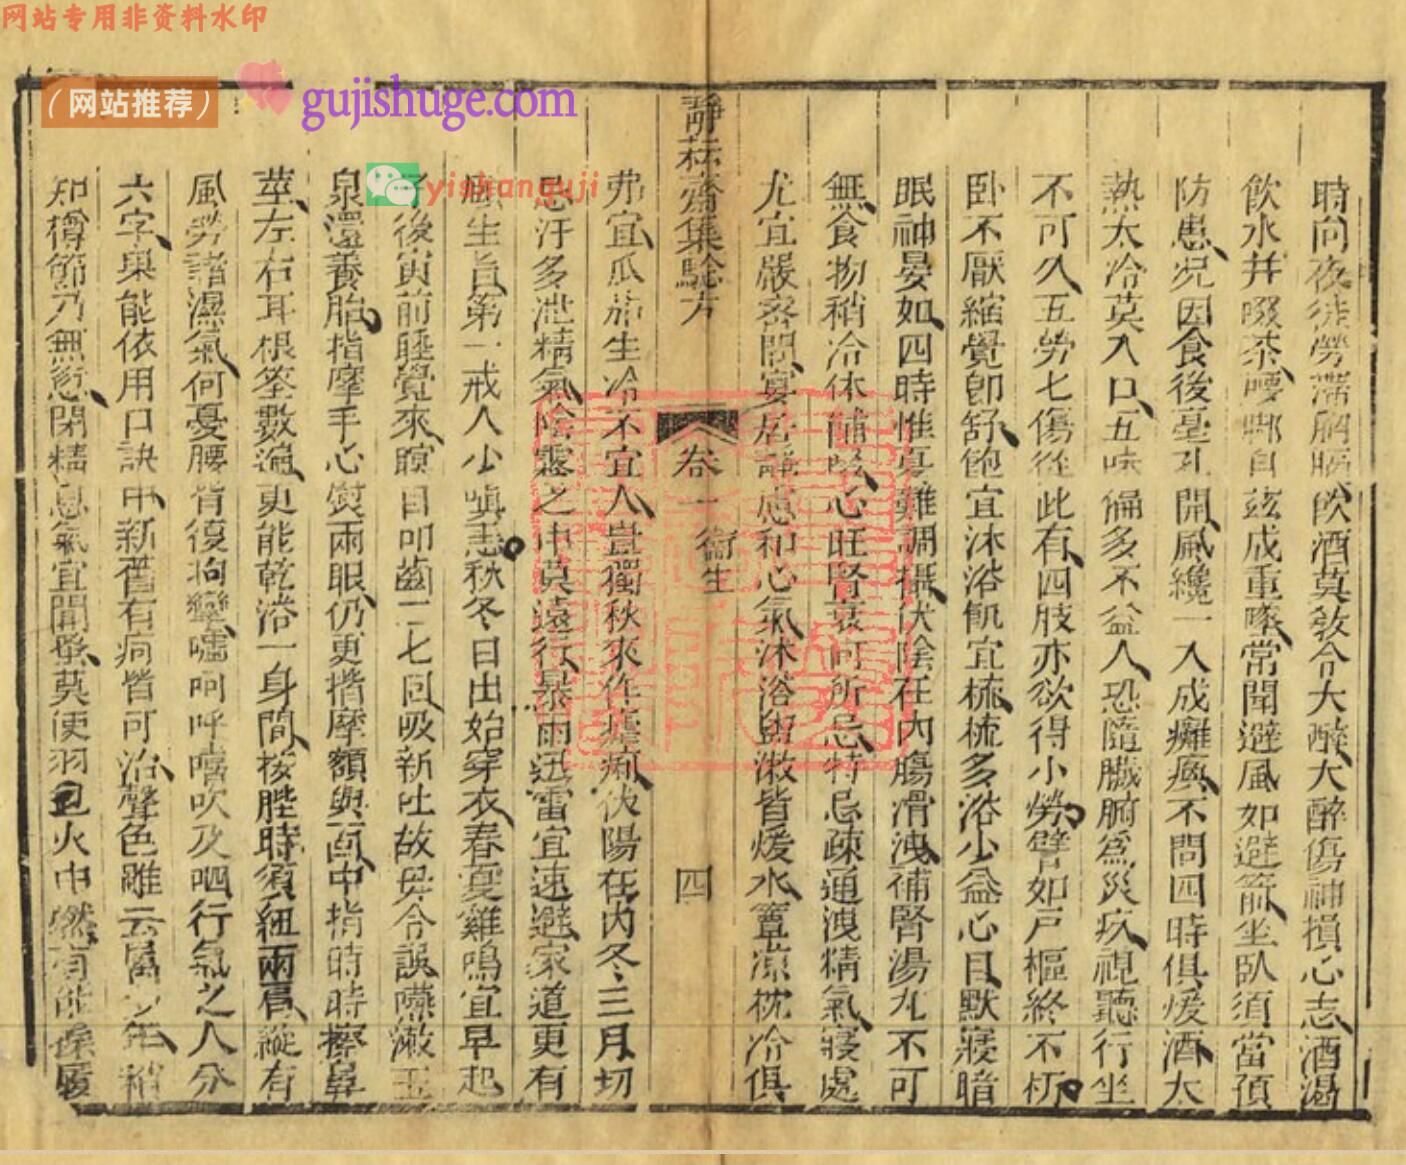 网站专用非资料水印
(网站推荐)
gujishuge.com
yishanguji
時向夜徒勞滯胸膈飲酒莫教令大醉大醉傷神損心志酒渴
飲水并啜茶腰脚自茲成重墜常聞避風如避箭坐臥須當預
防患况因食後毫孔開風纔一入成癱瘓不問四時俱煖酒太
熱太冷莫入口五味偏多不益人恐隨臟腑爲災疚視聽行坐
不可久五勞七傷從此有四肢亦欲得小勞譬如戶樞終不朽
卧不厭縮覺卽舒飽宜沐浴飢宜梳梳多浴少益心目默寢暗
眠神晏如四時惟夏難調攝伏陰在內腸滑洩補腎湯丸不可
無食物稍冷休餔啜心旺腎衰何所忌特忌疎通洩精氣寢處
尤宜嚴密間宴居靜慮和心氣沐浴盥漱皆煖水簟凉枕冷俱
靜耘齋集驗方
卷一 衞生
四
弗宜瓜茄生冷不宜人豈獨秋來作瘧痢伏陽在內冬三月切
忌汗多泄精氣陰霧之中莫遠行暴雨迅雷宜速避家道更有
養生旨第一戒人少嗔恚秋冬日出始穿衣春夏雞鳴宜早起
子後寅前睡覺來瞑目叩齒二七回吸新吐故毋令誤嚥漱玉
泉還養胎指摩手心熨兩眼仍更揩摩額與面中指時時擦鼻
莖左右耳根筌數遍更能乾浴一身間按䏶時須紐兩肩縱有
風勞諸濕氣何憂腰背復拘攣噓呵呼嘻吹及呬行氣之人分
六字果能依用口訣中新舊有痾皆可治聲色雖云屬少年稍
知樽節乃無愆閉精息氣宜聞蚤莫使羽包火中燃有能操履